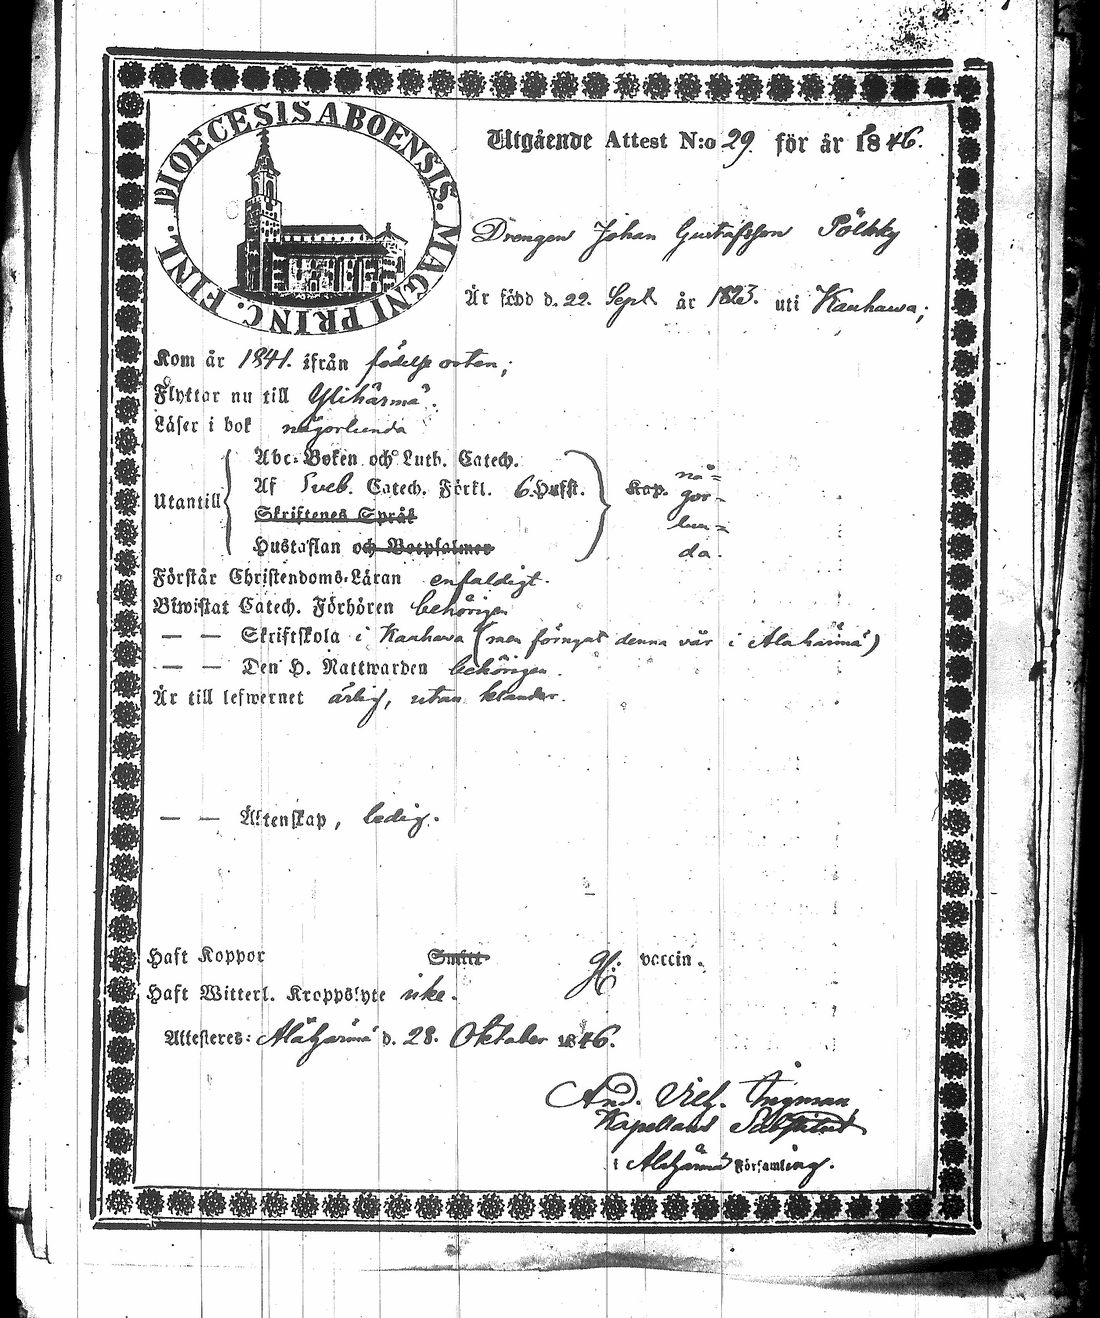 DIOECESIS ABOENSIS. MAGNI PRINC. FINL.
Utgående Attest N:o 29 för år 1846.
Drengen Johan Gustafsson Pölkky
Är född d. 22. Sept. år 1823. uti Kauhawa;
Kom år 1841. ifrån födelse orten;
Flyttar nu till Ylihärmä.
Läser i bok någorlunda
Abc-Boken och Luth. Catech.
Utantill Af Sveb. Catech. Förkl. 6. Hufst. Kap. nå=
gor-
Skriftenes Språk lun=
Hustaflan och Botpsalmer da.
Förstår Christendoms-Läran enfaldigt.
Biwistat Catech. Förhören behörigen
— — Skriftskola i Kauhawa (men förnyat denna vår i Alahärmä)
— — Den H. Nattwarden behörigen.
Är till lefwernet ärlig, utan klander.
— — Äktenskap, ledig.
Haft Koppor Smitt vaccin.
Haft Witterl. Kroppslyte icke.
Attesteres: Alahärmä d. 28. Oktober 1846.
And. Vilh. Ingman
Kapellans
i Alahärmä Församling.